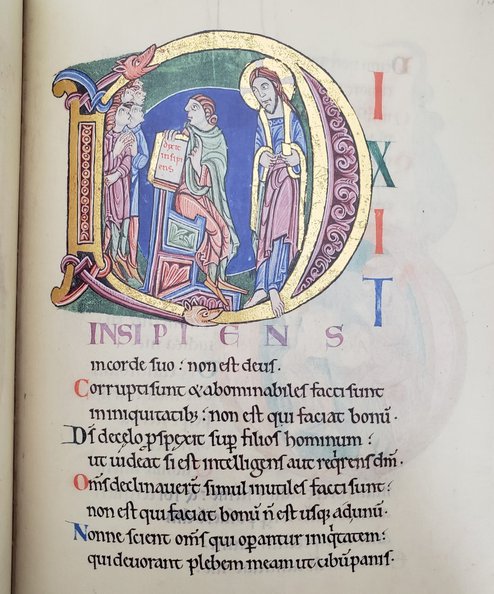 DIXIT
dixit
insipi
ens
INSIPIENS
in corde suo : non est deus.
Corrupti sunt & abominabiles facti sunt
in iniquitatib; : non est qui faciat bonū.
Dс̄ de celo ꝑspexit sup̄ filios hominum :
ut uideat si est intelligens aut reqͥrens dm̄.
Om̄s declinauer̄t simul inutiles facti sunt :
non est qui faciat bonū n̄ est usq; ad unū.
Nonne scient om̄s qui oꝑantur iniqͥtatem :
qui deuorant plebem meam ut cibū panis.